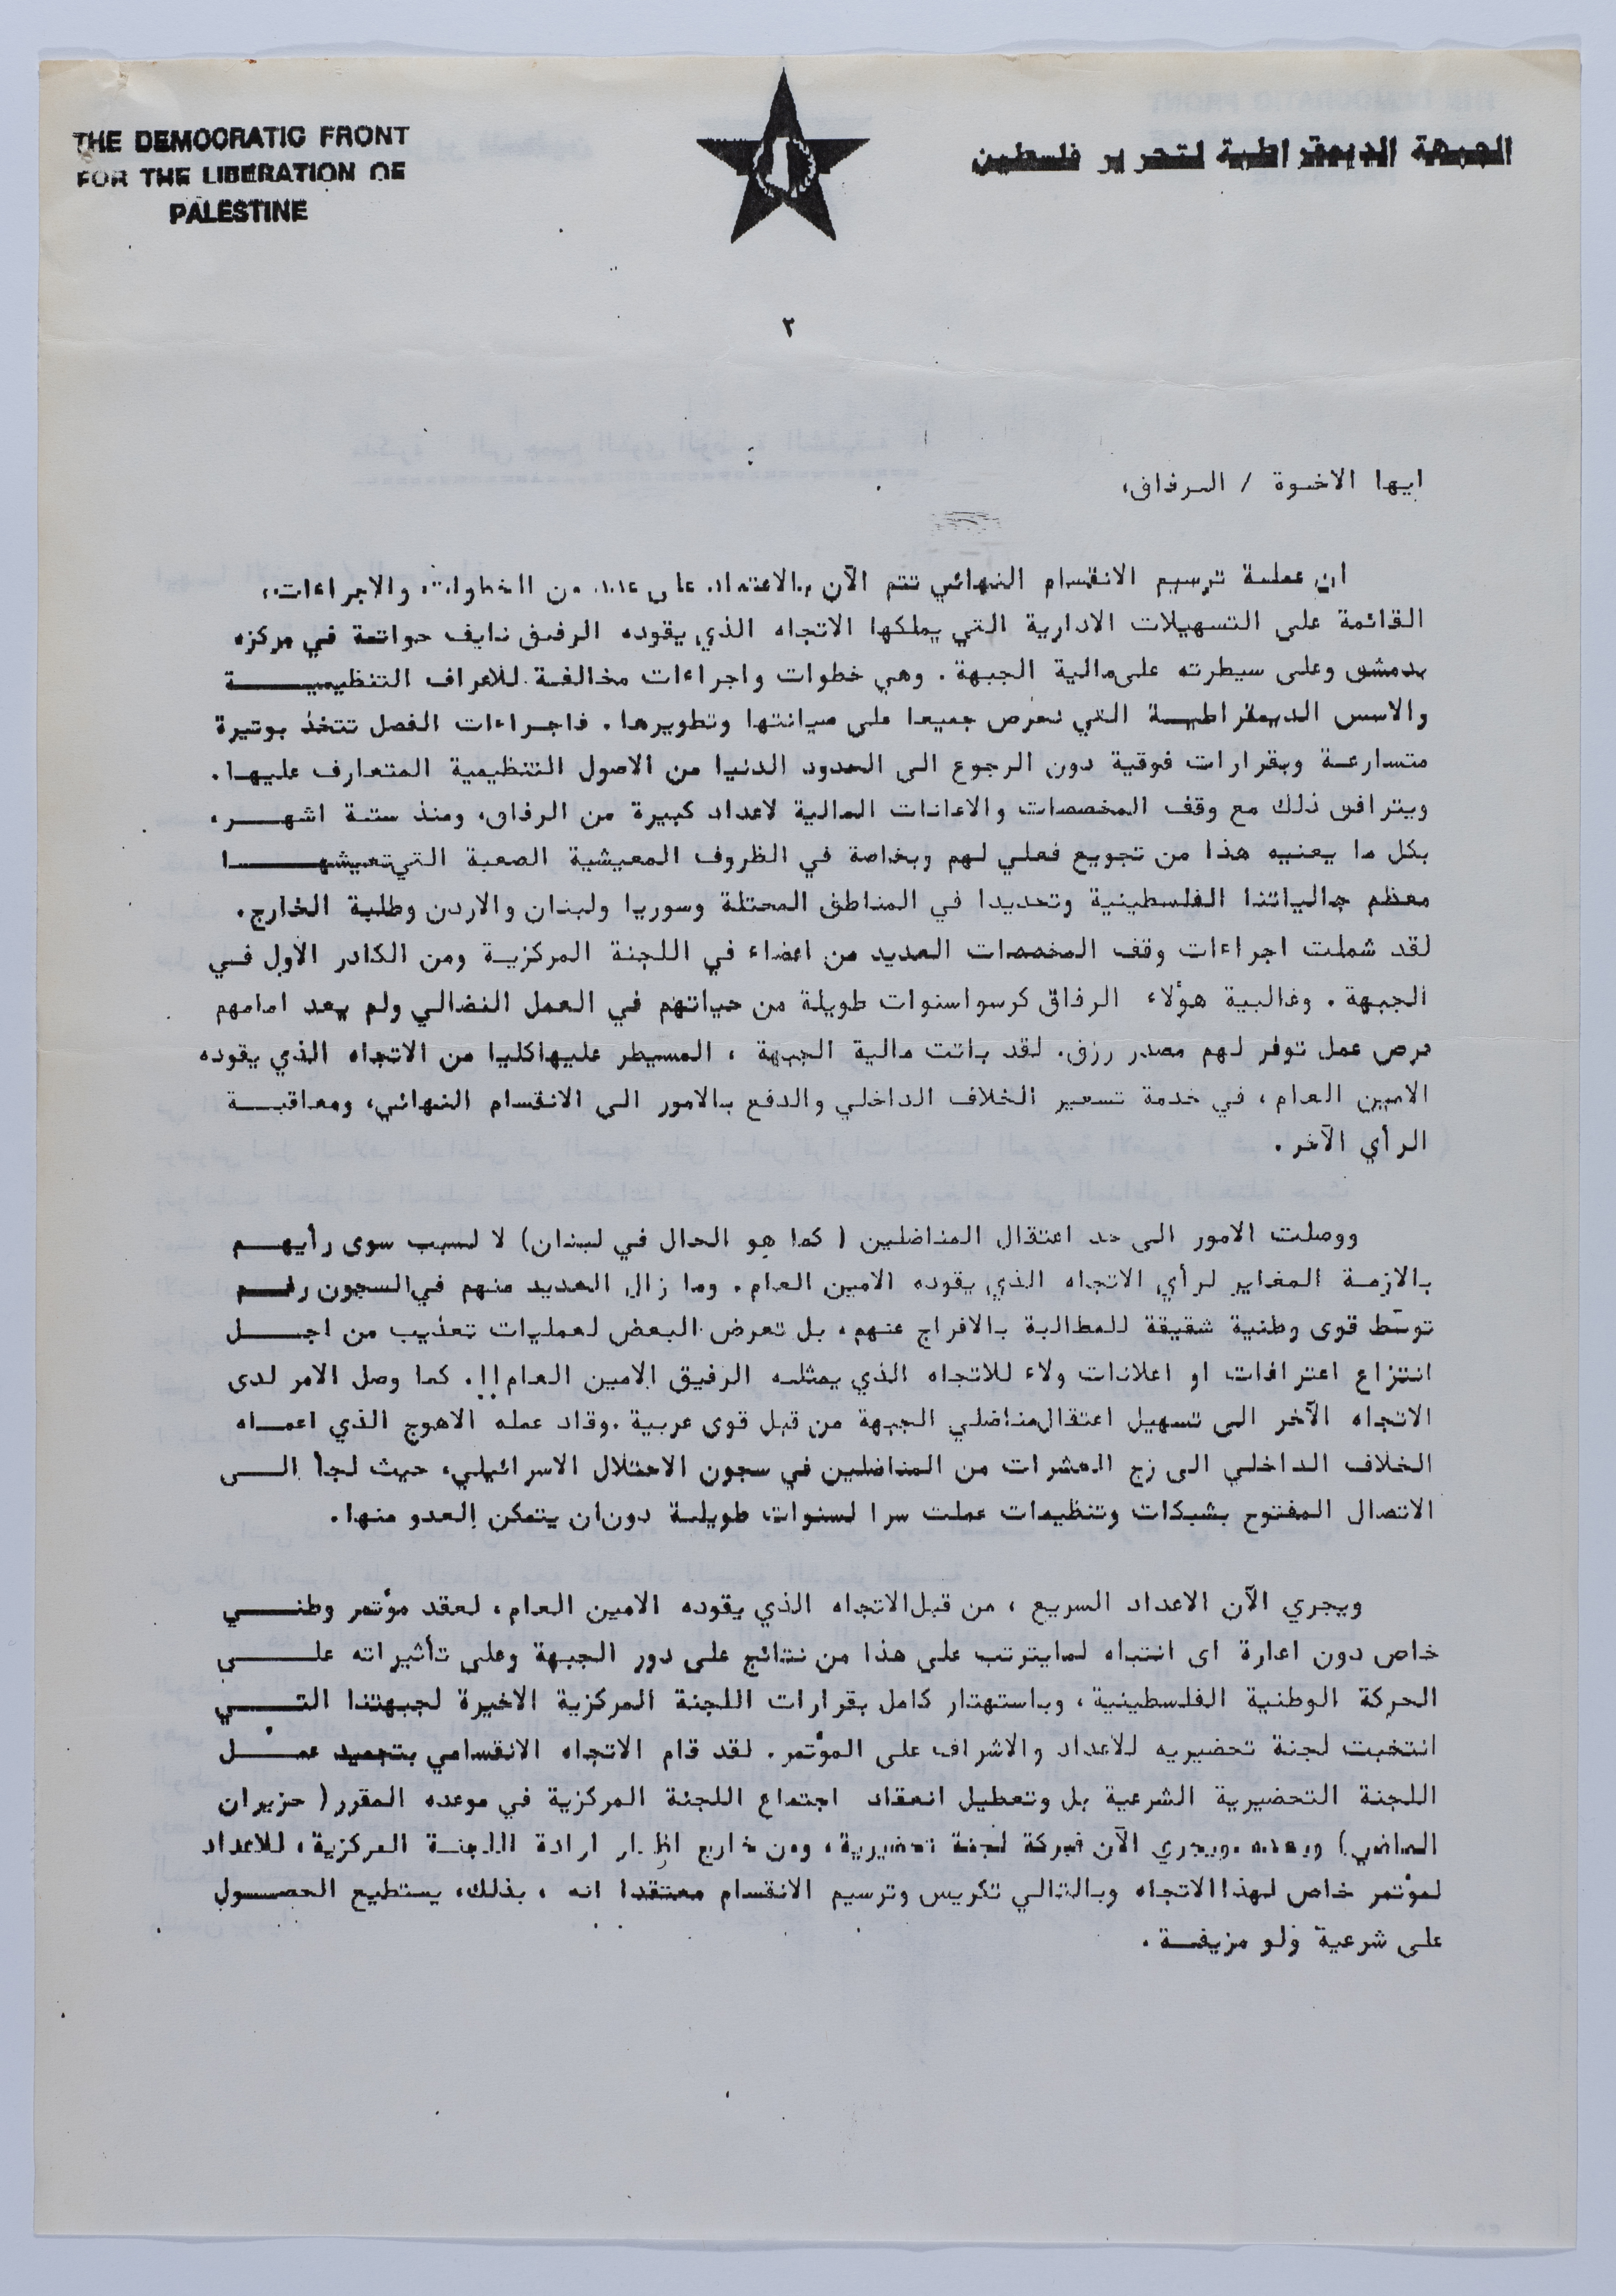 THE DEMOCRATIC FRONT
FOR THE LIBERATION OF
PALESTINE
الجبهة الديمقراطية لتحرير فلسطين
٢
ايها الاخوة / الرفاق،
ان عملية ترسيم الانقسام النهائي تتم الآن بالاعتماد على عدد من الخطوات والاجراءات،
القائمة على التسهيلات الادارية التي يملكها الاتجاه الذي يقوده الرفيق نايف حواتمة في مركزه
بدمشق وعلى سيطرته على مالية الجبهة . وهي خطوات واجراءات مخالفة للاعراف التنظيميـــــة
والاسس الديمقراطيـة التي نحرص جميعا على صيانتها وتطويرها . فاجراءات الفصل تتخذ بوتيرة
متسارعة وبقرارات فوقية دون الرجوع الى الحدود الدنيا من الاصول التنظيمية المتعارف عليها .
ويترافق ذلك مع وقف المخصصات والاعانات المالية لاعداد كبيرة من الرفاق، ومنذ ستة اشهـــر،
بكل ما يعنيه هذا من تجويع فعلي لهم وبخاصة في الظروف المعيشية الصعبة التي تعيشهـــــا
معظم جالياتنا الفلسطينية وتحديدا في المناطق المحتلة وسوريا ولبنان والاردن وطلبة الخارج .
لقد شملت اجراءات وقف المخصصات العديد من اعضاء في اللجنة المركزية ومن الكادر الأول فـي
الجبهة . وغالبية هؤلاء الرفاق كرسوا سنوات طويلة من حياتهم في العمل النضالي ولم يعد امامهم
فرص عمل توفر لهم مصدر رزق . لقد باتت مالية الجبهة ، المسيطر عليها كليا من الاتجاه الذي يقوده
الامين العام ، في خدمة تسعير الخلاف الداخلي والدفع بالامور الى الانقسام النهائي، ومعاقبـــة
الرأي الآخر .
ووصلت الامور الى حد اعتقال المناضلين ( كما هو الحال في لبنان) لا لسبب سوى رأيهـــم
بالازمة المغاير لرأي الاتجاه الذي يقوده الامين العام . وما زال العديد منهم في السجون رغـــم
توسّط قوى وطنية شقيقة للمطالبة بالافراج عنهم ، بل تعرض البعض لعمليات تعذيب من اجـــل
انتزاع اعترافات او اعلانات ولاء للاتجاه الذي يمثله الرفيق الامين العام !! . كما وصل الامر لدى
الاتجاه الآخر الى تسهيل اعتقال مناضلي الجبهة من قبل قوى عربية . وقاد عمله الاهوج الذي اعمـاه
الخلاف الداخلي الى زج العشرات من المناضلين في سجون الاحتلال الاسرائيلي، حيث لجأ الـــى
الاتصال المفتوح بشبكات وتنظيمات عملت سرا لسنوات طويلة دون ان يتمكن العدو منها .
ويجري الآن الاعداد السريع ، من قبل الاتجاه الذي يقوده الامين العام ، لعقد مؤتمر وطنـــي
خاص دون اعارة اى انتباه لما يترتب على هذا من نتائج على دور الجبهة وعلى تأثيراته علـــى
الحركة الوطنية الفلسطينية ، وباستهتار كامل بقرارات اللجنة المركزية الاخيرة لجبهتنا التـــي
انتخبت لجنة تحضيريه للاعداد والاشراف على المؤتمر . لقد قام الاتجاه الانقسامي بتجميد عمـــل
اللجنة التحضيرية الشرعية بل وتعطيل انعقاد اجتماع اللجنة المركزية في موعده المقرر ( حزيران
الماضي) وبعده .ويجري الآن فبركة لجنة تحضيرية ، ومن خارج اطار ارادة اللجنة المركزية ، للاعداد
لمؤتمر خاص لهذا الاتجاه وبالتالي تكريس وترسيم الانقسام معتقدا انه ، بذلك، يستطيع الحصــول
على شرعية ولو مزيفـة .